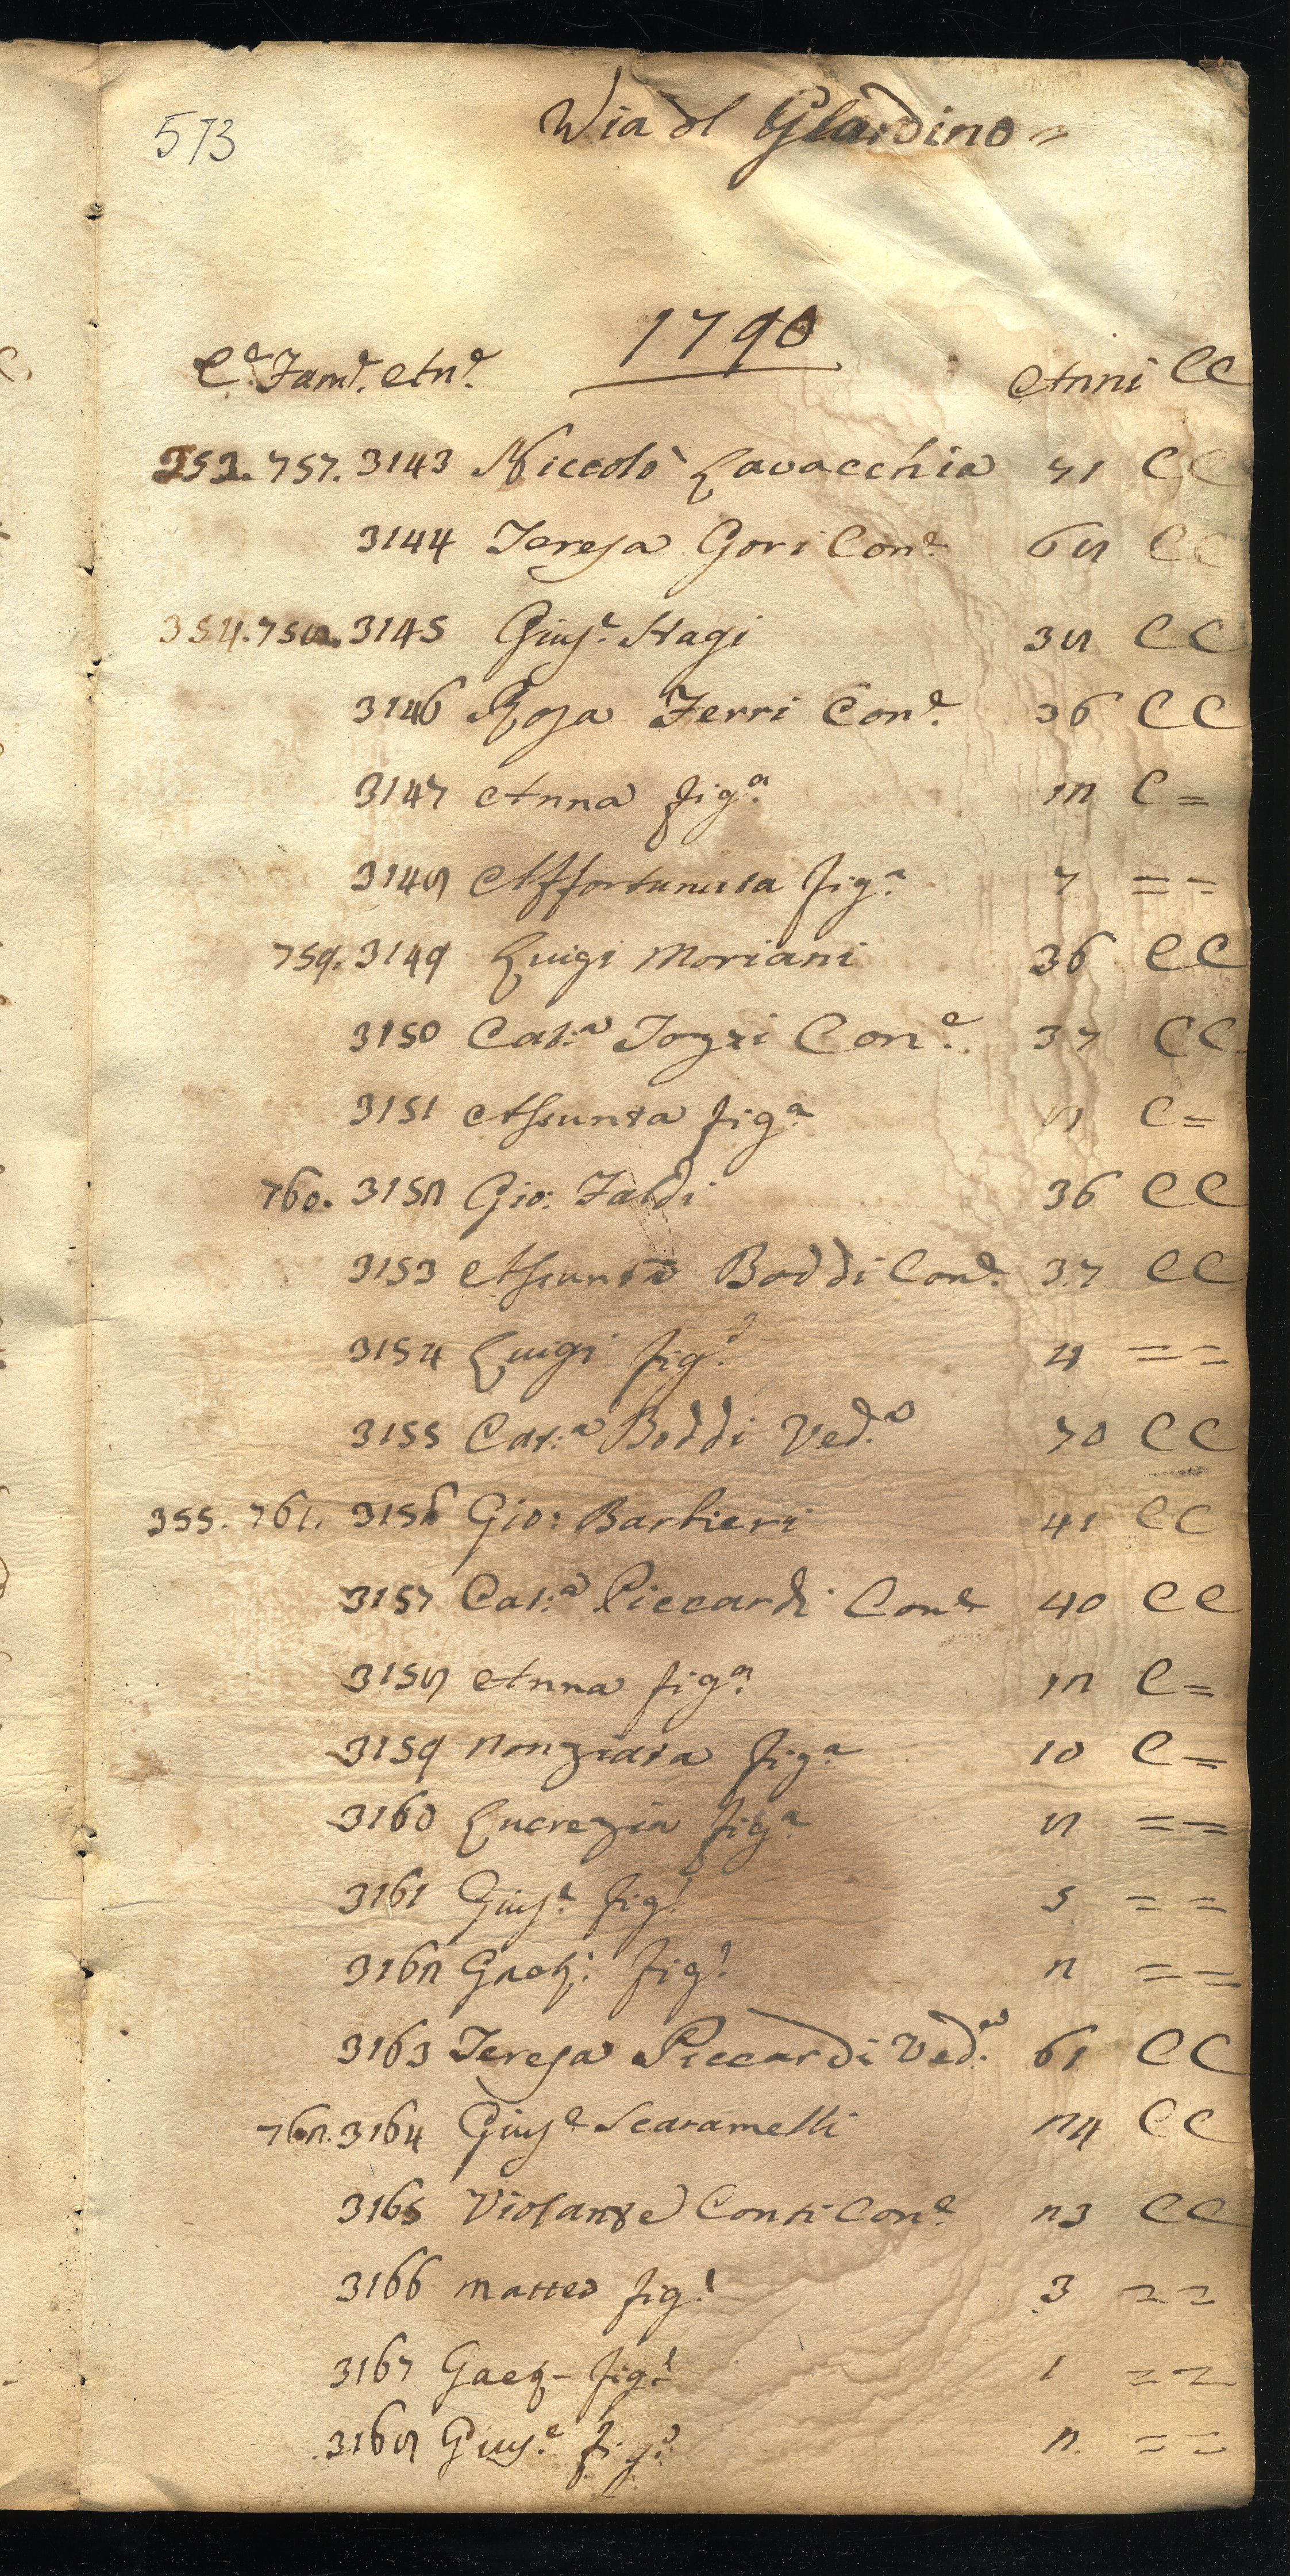 573
Via dl Giardino =
1790
Ce. Fame. Ane. Anni CC
353. 757. 3143 Niccolò Lavacchia 71 CC
3144 Teresa Gori Cone. 68 CC
354. 758. 3145 Giuse. Nagi 38 CC
3146 Rosa Ferri Cone. 36 CC
3147 Anna figa. 12 C =
3148 Affortunata figa. 7 = =
759. 3149 Luigi Moriani 36 CC
3150 Cat:a Tozzi Cone. 37 CC
3151 Assunta figa. 8 C =
760. 3152 Gio: Faldi 36 CC
3153 Assunta Boddi Cone. 37 CC
3154 Luigi figo. 4 = =
3155 Cat:a Boddi Ved.a 70 CC
355. 761. 3156 Gio: Barbieri 41 CC
3157 Cat:a Piccardi Cone 40 CC
3158 Anna figa. 12 C =
3159 Nonziata figa. 10 C =
3160 Lucrezia figa. 8 = =
3161 Giuse. figo. 5 = =
3162 Gaet: figo. 2 = =
3163 Teresa Piccardi Ved.a 61 CC
762. 3164 Giuse Scaramelli 24 CC
3165 Violante Conti Cone. 23 CC
3166 Matteo figo. 3 = =
3167 Gaet= figo. 1 = =
3168 Giuse. figo. 2 = =